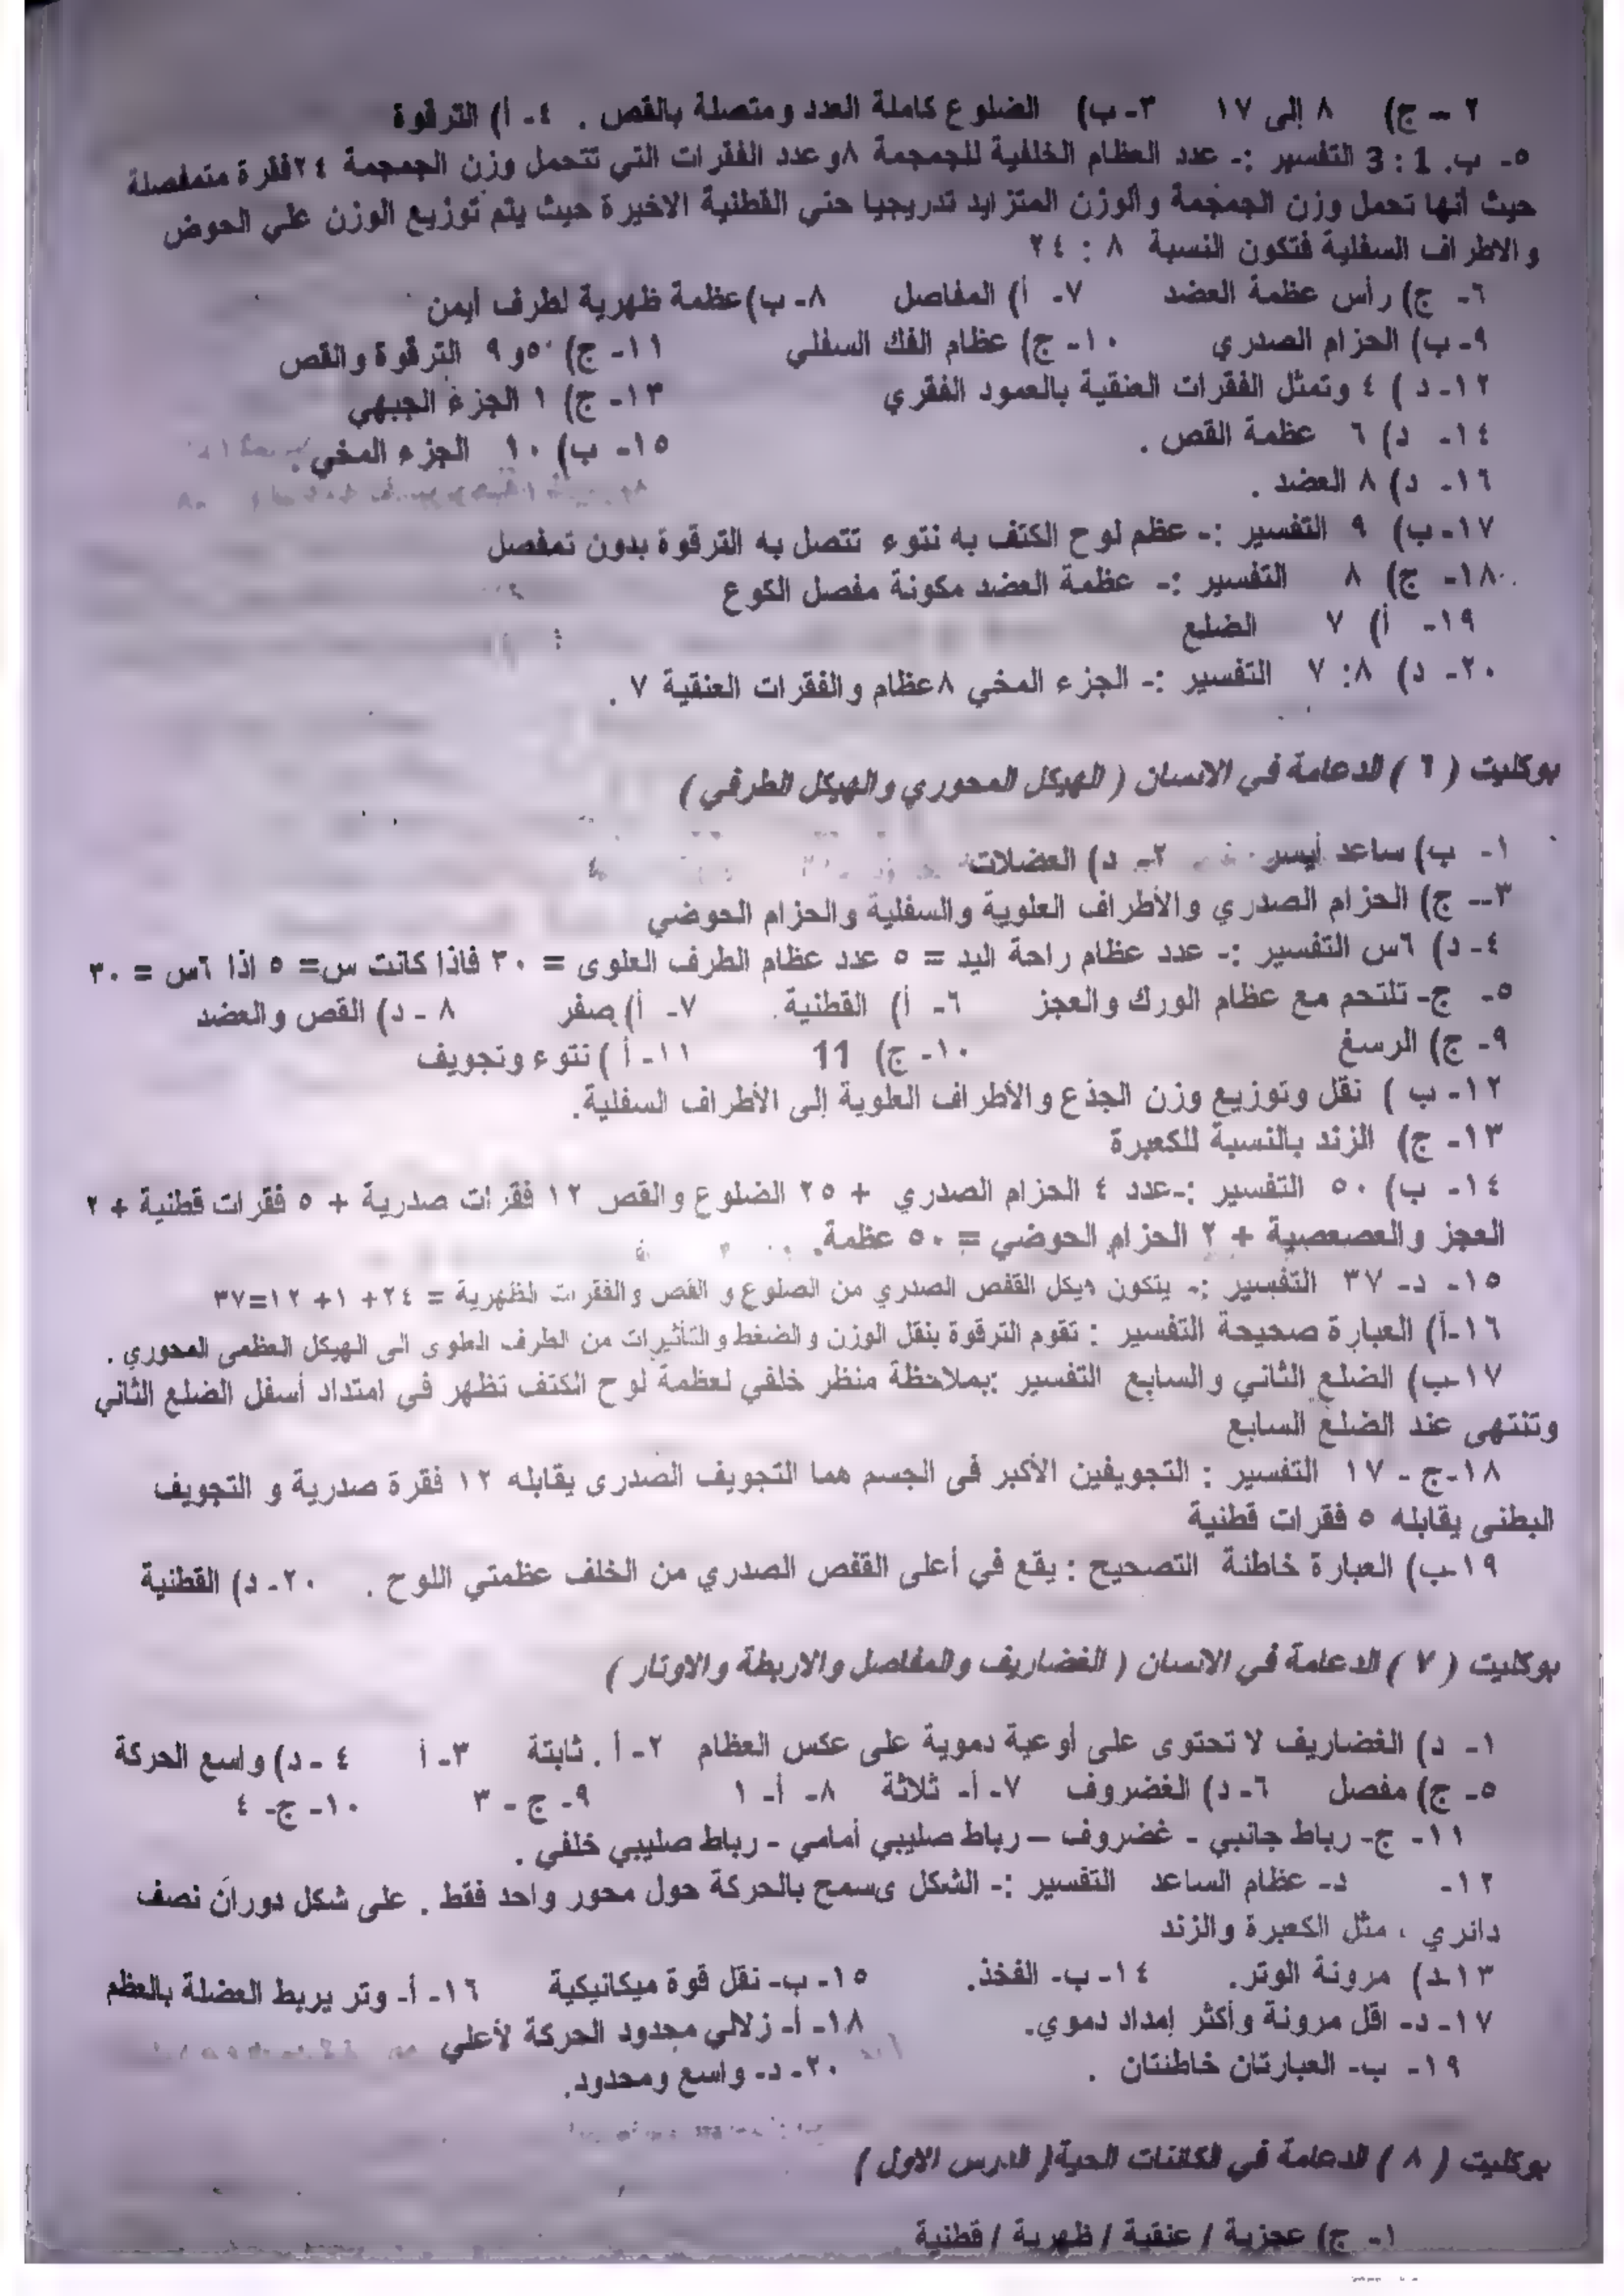 ٢ – ج) ٨ إلى ١٧ ٣- ب) الضلوع كاملة العدد ومتصلة بالقص . ٤- أ) الترقوة
٥- ب. 1 : 3 التفسير :- عدد العظام الخلفية للجمجمة ٨ وعدد الفقرات التي تتحمل وزن الجمجمة ٢٤ فقرة متمفصلة
حيث أنها تحمل وزن الجمجمة والوزن المتزايد تدريجيا حتي القطنية الاخيرة حيث يتم توزيع الوزن علي الحوض
والاطراف السفلية فتكون النسبة ٨ : ٢٤
٦- ج) رأس عظمة العضد ٧- أ) المفاصل ٨- ب) عظمة ظهرية لطرف أيمن
٩- ب) الحزام الصدري ١٠- ج) عظام الفك السفلي ١١- ج) ٥ و ٩ الترقوة والقص
١٢- د ) ٤ وتمثل الفقرات العنقية بالعمود الفقري ١٣- ج) ١ الجزء الجبهي
١٤- د) ٦ عظمة القص . ١٥- ب) ١٠ الجزء المخي .
١٦- د) ٨ العضد .
١٧- ب) ٩ التفسير :- عظم لوح الكتف به نتوء تتصل به الترقوة بدون تمفصل
١٨- ج) ٨ التفسير :- عظمة العضد مكونة مفصل الكوع
١٩- أ) ٧ الضلع
٢٠- د) ٨: ٧ التفسير :- الجزء المخي ٨ عظام والفقرات العنقية ٧ .
بوكليت ( ٦ ) الدعامة في الانسان ( الهيكل المحوري والهيكل الطرفي )
١- ب) ساعد أيسر ٢- د) العضلات
٣– ج) الحزام الصدري والأطراف العلوية والسفلية والحزام الحوضي
٤- د) ٦س التفسير :- عدد عظام راحة اليد = ٥ عدد عظام الطرف العلوى = ٣٠ فاذا كانت س= ٥ اذا ٦س = ٣٠
٥- ج- تلتحم مع عظام الورك والعجز ٦- أ) القطنية. ٧- أ) صفر ٨ - د) القص والعضد
٩- ج) الرسغ ١٠- ج) 11 ١١- أ ) نتوء وتجويف
١٢- ب ) نقل وتوزيع وزن الجذع والأطراف العلوية إلى الأطراف السفلية.
١٣- ج) الزند بالنسبة للكعبرة
١٤- ب) ٥٠ التفسير :-عدد ٤ الحزام الصدري + ٢٥ الضلوع والقص ١٢ فقرات صدرية + ٥ فقرات قطنية + ٢
العجز والعصعصية + ٢ الحزام الحوضي = ٥٠ عظمة.
١٥- د- ٣٧ التفسير :- يتكون هيكل القفص الصدري من الضلوع و القص والفقرات الظهرية = ٢٤+ ١+ ١٢=٣٧
١٦-أ) العبارة صحيحة التفسير : تقوم الترقوة بنقل الوزن والضغط والتأثيرات من الطرف العلوى الى الهيكل العظمى المحوري .
١٧-ب) الضلع الثاني والسابع التفسير :بملاحظة منظر خلفي لعظمة لوح الكتف تظهر فى امتداد أسفل الضلع الثاني
وتنتهى عند الضلع السابع
١٨-ج - ١٧ التفسير : التجويفين الأكبر فى الجسم هما التجويف الصدرى يقابله ١٢ فقرة صدرية و التجويف
البطنى يقابله ٥ فقرات قطنية
١٩-ب) العبارة خاطئة التصحيح : يقع في أعلى القفص الصدري من الخلف عظمتي اللوح . ٢٠- د) القطنية
بوكليت ( ٧ ) الدعامة في الانسان ( الغضاريف والمفاصل والاربطة والاوتار )
١- د) الغضاريف لا تحتوى على أوعية دموية على عكس العظام ٢- أ . ثابتة ٣- أ ٤ - د) واسع الحركة
٥- ج) مفصل ٦- د) الغضروف ٧- أ- ثلاثة ٨- أ- ١ ٩- ج - ٣ ١٠- ج- ٤
١١- ج- رباط جانبي - غضروف – رباط صليبي أمامي - رباط صليبي خلفي .
١٢- د- عظام الساعد التفسير :- الشكل يسمح بالحركة حول محور واحد فقط . على شكل دوران نصف
دائري ، مثل الكعبرة والزند
١٣-د) مرونة الوتر. ١٤- ب- الفخذ. ١٥- ب- نقل قوة ميكانيكية ١٦- أ- وتر يربط العضلة بالعظم
١٧- د- اقل مرونة وأكثر إمداد دموي. ١٨- أ- زلالي محدود الحركة لأعلي
١٩- ب- العبارتان خاطئتان . ٢٠- د- واسع ومحدود.
بوكليت ( ٨ ) الدعامة في الكائنات الحية( الدرس الاول )
١- ج) عجزية / عنقية / ظهرية / قطنية